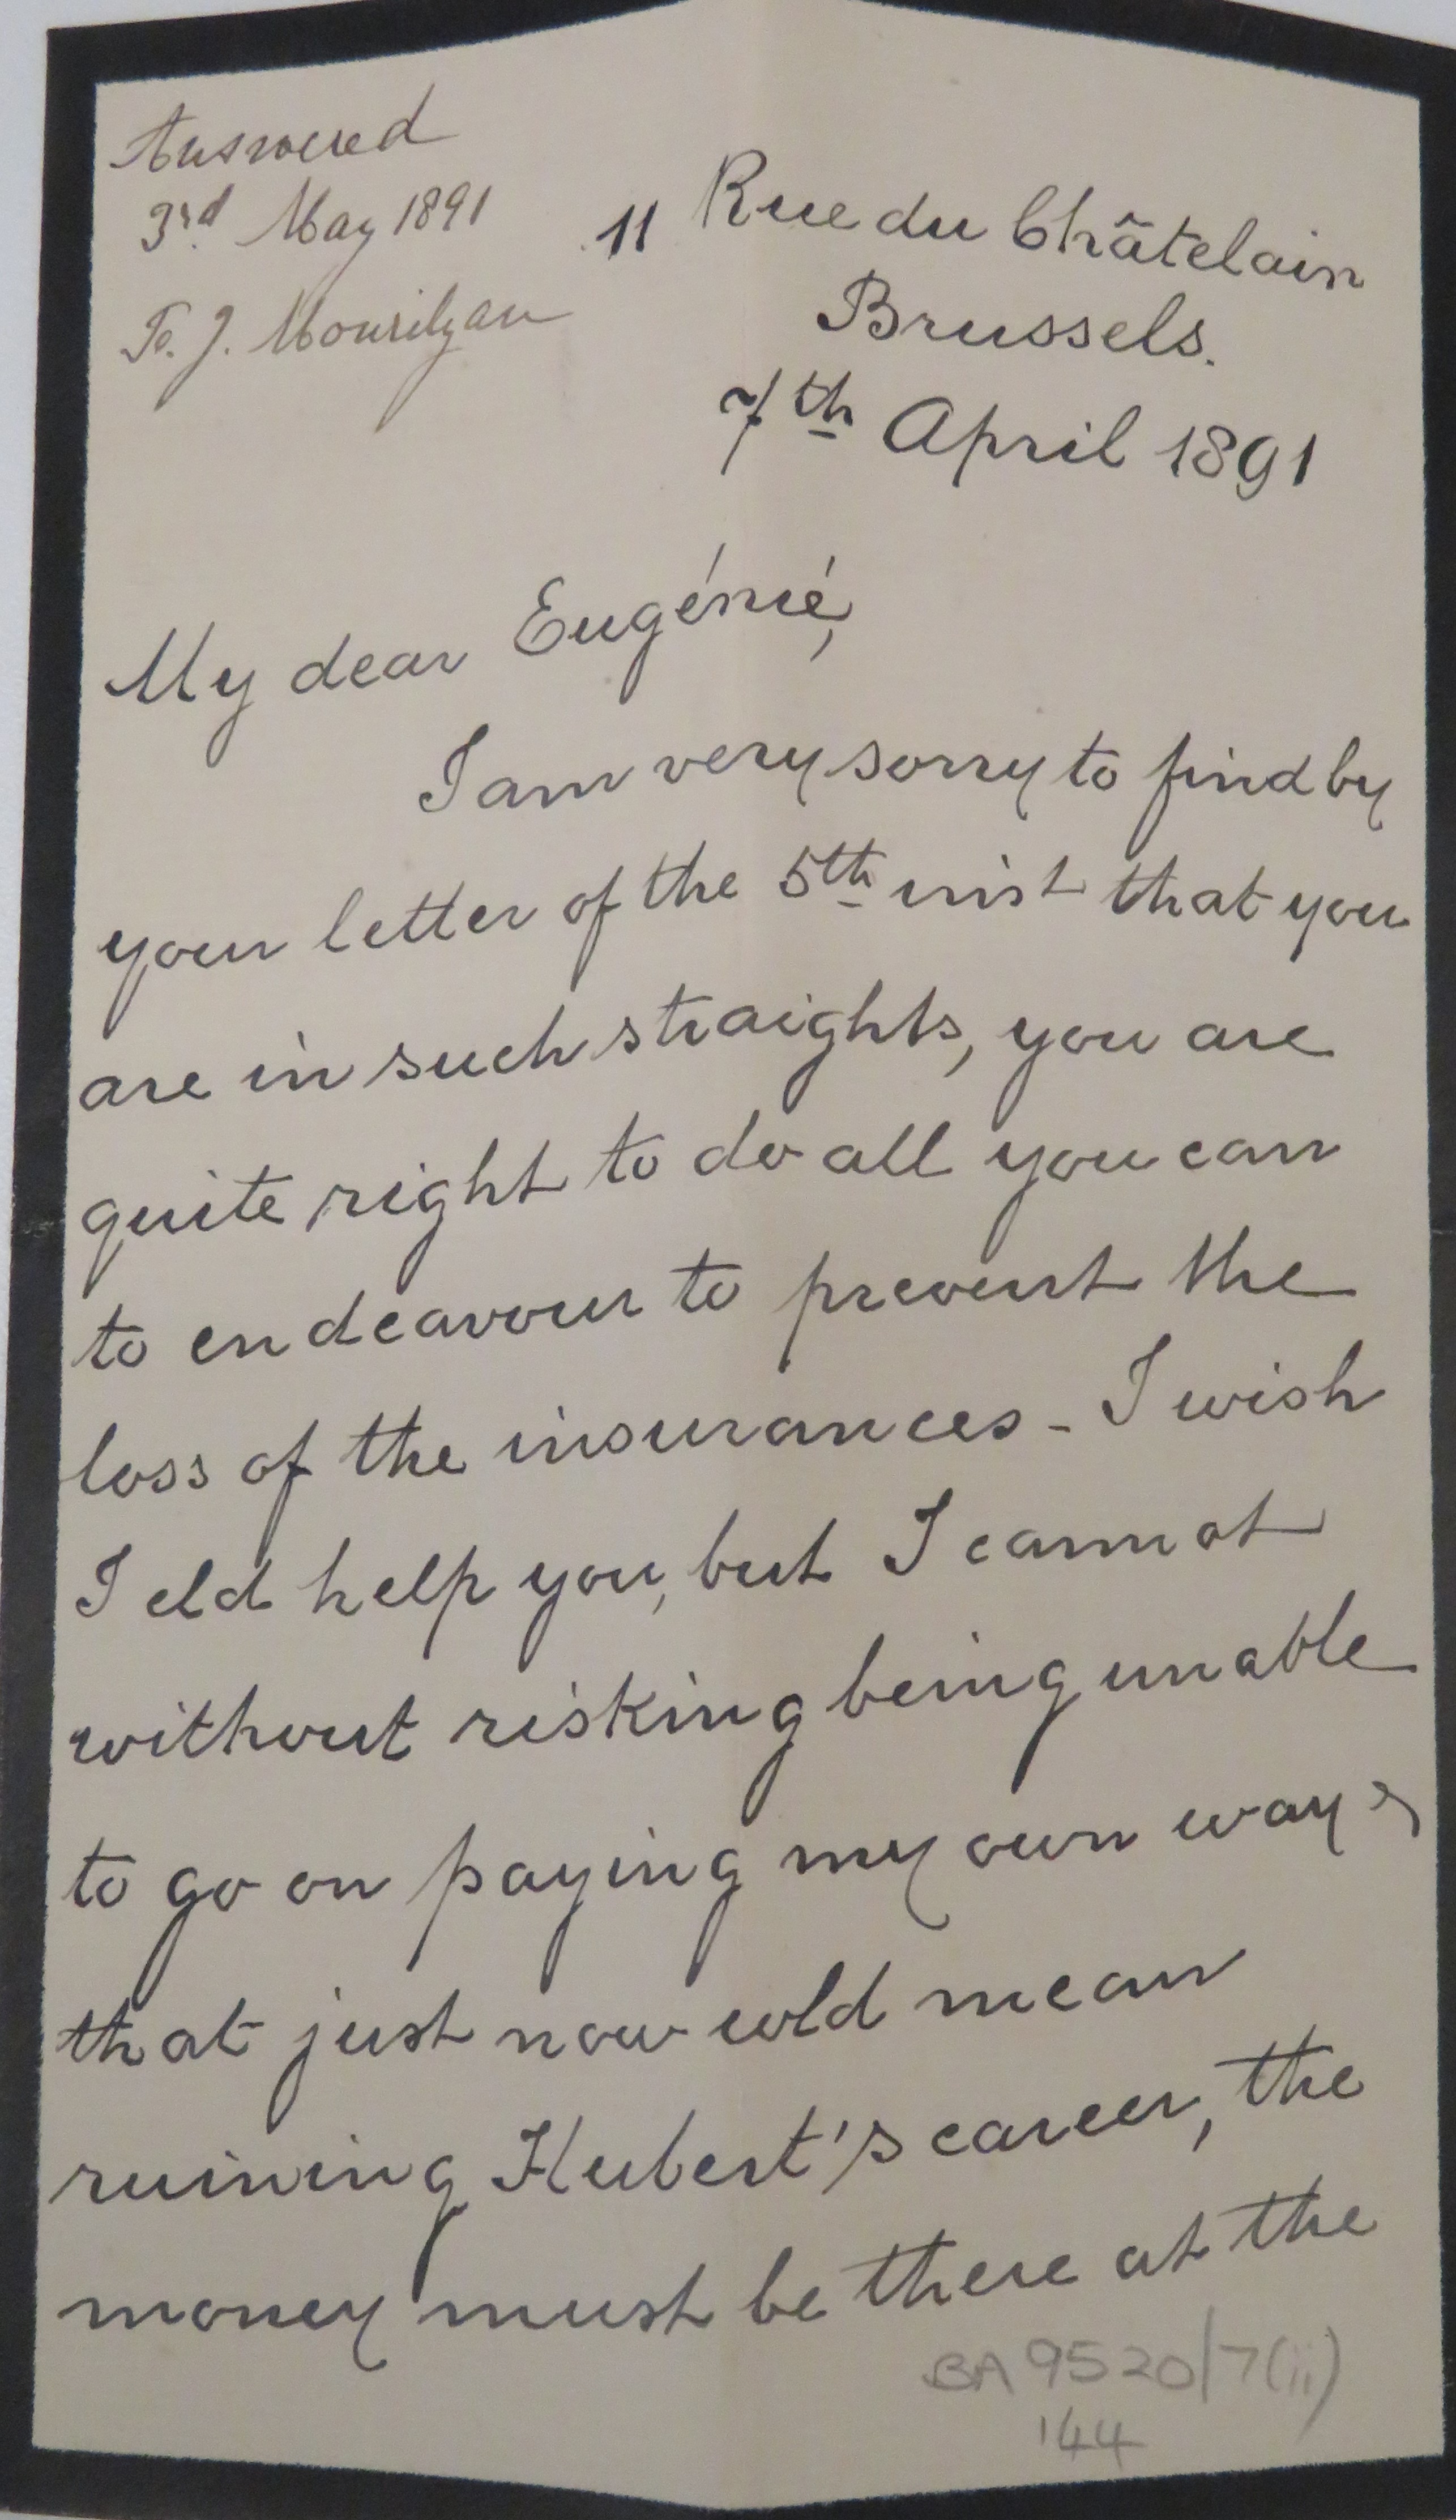 Answered
3rd May 1891
To. J. Mourilyan
11 Rue du Châtelain
Brussels.
7th April 1891
My dear Eugénié,
I am very sorry to find by
your letter of the 5th inst that you
are in such straights, you are
quite right to do all you can
to endeavour to prevent the
loss of the insurances - I wish
I cld help you, but I cannot
without risking being unable
to go on paying my own way &
that just now wld mean
ruining Hubert's career, the
money must be there at the
BA 9520/7(ii)
144